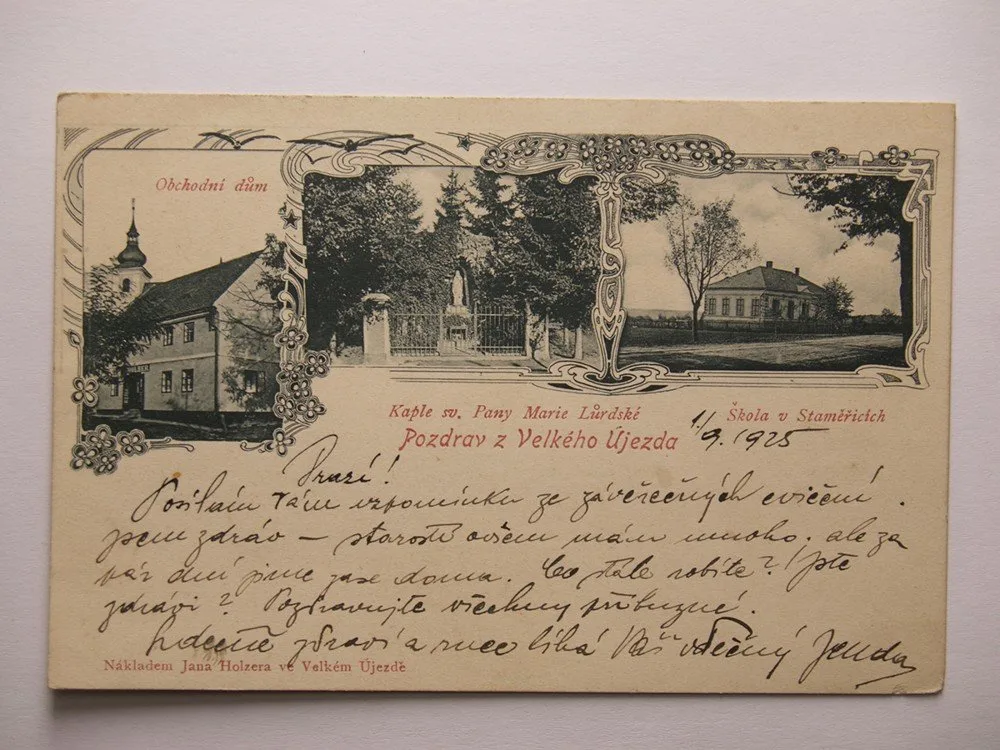 Obchodní dům
Kaple sv. Pany Marie Lůrdské
Škola v Staměřicích
Pozdrav z Velkého Újezda
1/9. 1925
Drazí!
Posílám Vám vzpomínku ze závěrečných cvičení.
jsem zdráv – starostí ovšem mám mnoho. ale za
pár dní jsme zase doma. Co stále robíte? Jste
zdrávi? Pozdravujte všechny příbuzné.
Srdečně zdraví a ruce líbá Váš vděčný Jenda
Nákladem Jana Holzera ve Velkém Újezdě